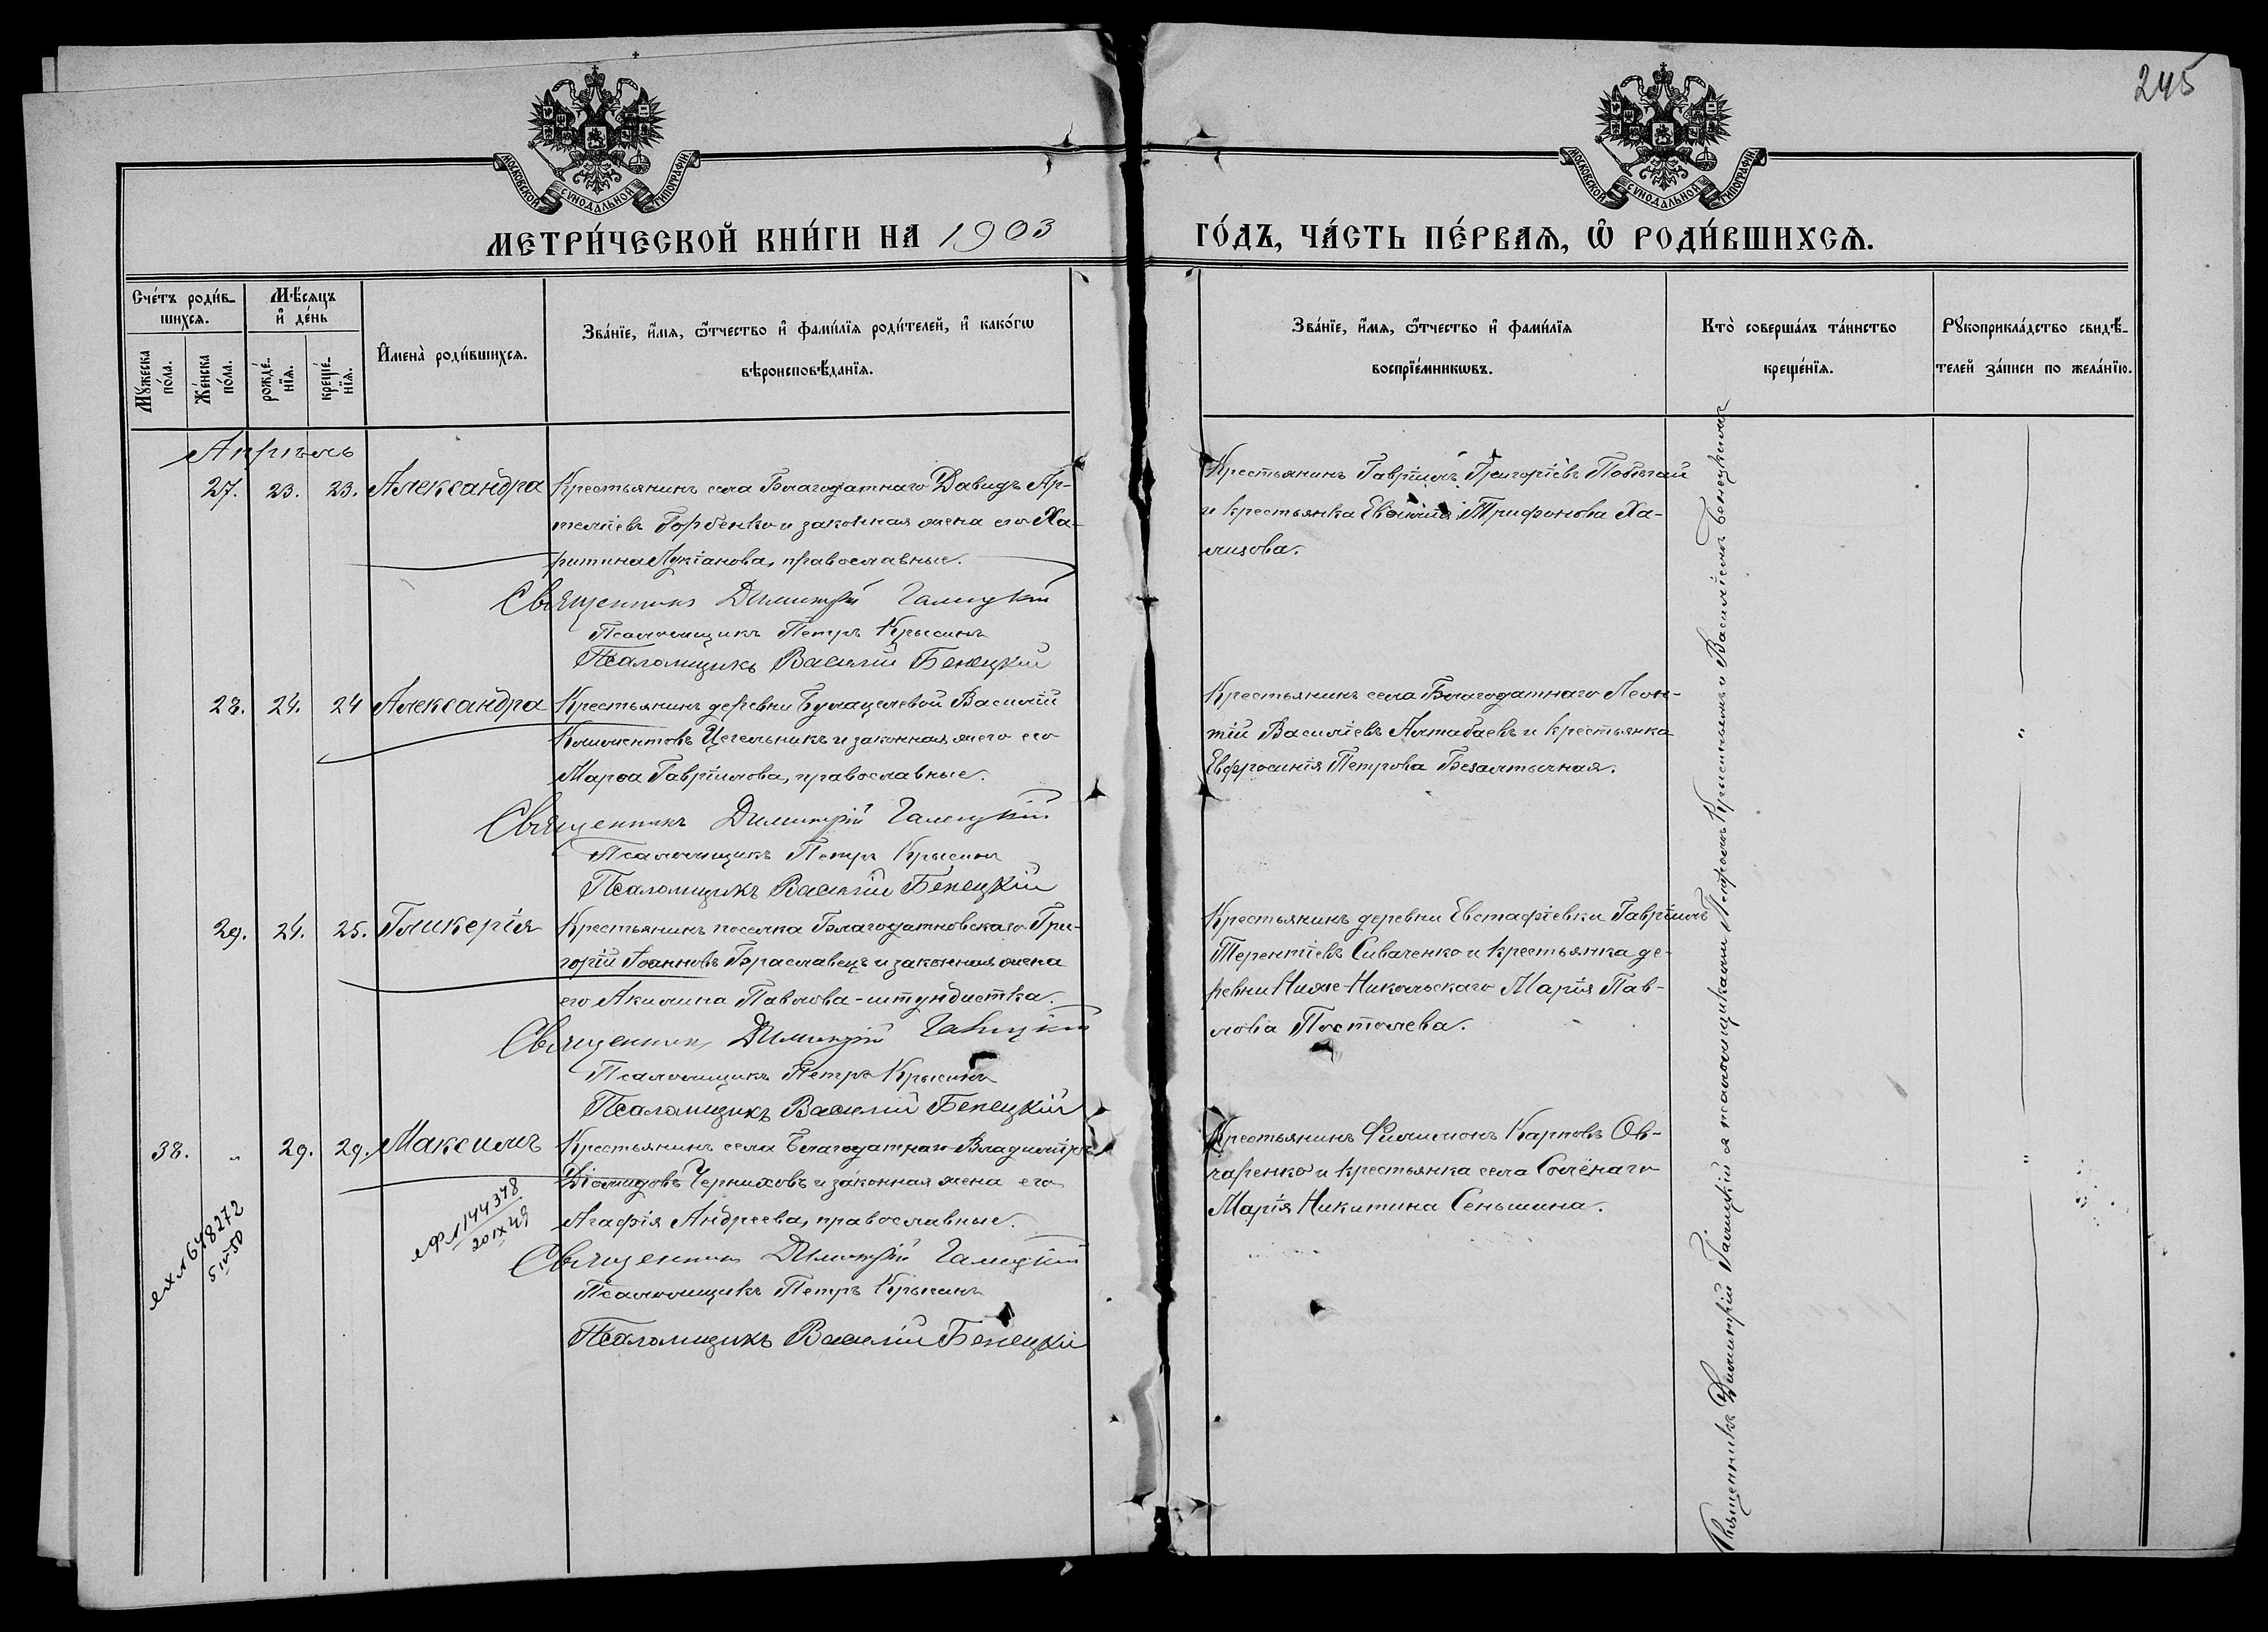 245
МОСКОВСКОЙ СѴНОДАЛЬНОЙ ТИПОГРАФІИ
МОСКОВСКОЙ СѴНОДАЛЬНОЙ ТИПОГРАФІИ
МЕТРИ́ЧЕСКОЙ КНИ́ГИ НА 1903
ГО́ДЪ, ЧА́СТЬ ПЕ́РВАѦ, Ѿ РОДИ́ВШИХСѦ.
Сче́тъ роди́в-
шихсѧ.
Мѣ́сяцъ
и҆ де́нь
Мꙋ́жеска
по́ла.
Же́нска
по́ла.
рожде́-
нїѧ.
креще́-
нїѧ.
И҆мена̀ роди́вшихсѧ.
Зва́нїе, и҆́мѧ, ѻ҆́тчество и҆ фами́лїѧ роди́телей, и҆ како́гѡ
вѣроисповѣ́данїѧ.
Зва́нїе, и҆́мѧ, ѻ҆́тчество и҆ фами́лїѧ
воспрїе́мникѡвъ.
Кто̀ соверша́лъ та́инство
креще́нїѧ.
Рꙋкоприкла́дство свидѣ́-
телей за́писи по жела́нїю.
Апрѣль
27. 23. 23. Александра Крестьянинъ села Благодатнаго Давидъ Ар-
темiевъ Горбенко и законная жена его Ха-
ритина Лукiанова, православные.
Священникъ Димитрій Галицкій
Псаломщикъ Петръ Крысинъ
Псаломщикъ Василій Бенецкій
Крестьянинъ Гавріилъ Григоріевъ Побѣгай
и крестьянка Евѳимія Трифонова Ха-
лизова.
28. 24. 24 Александра Крестьянинъ деревни Булацелевой Василій
Климентовъ Цегельникъ и законная жена его
Марѳа Гавріилова, православные.
Священникъ Димитрій Галицкій
Псаломщикъ Петръ Крысинъ
Псаломщикъ Василій Бенецкій
Крестьянинъ села Благодатнаго Леон-
тій Василіевъ Алтабаевъ и крестьянка
Евфросинія Петрова Безалтычная.
29. 24. 25. Гликерія Крестьянинъ поселка Благодатновскаго Гри-
горій Іоанновъ Браславецъ и законная жена
его Акилина Павлова - штундистка.
Священникъ Димитрій Галицкій
Псаломщикъ Петръ Крысинъ
Псаломщикъ Василій Бенецкій
Крестьянинъ деревни Евстафіевки Гавріилъ
Терентіевъ Сиваченко и крестьянка де-
ревни Нижне-Никольскаго Марія Пав-
лова Постолева.
38. „ 29. 29. Максимъ Крестьянинъ села Благодатнаго Владиміръ
Діомидовъ Черниховъ и законная жена его
Агафія Андреева, православные.
Священникъ Димитрій Галицкій
Псаломщикъ Петръ Крысинъ
Псаломщикъ Василій Бенецкій
Крестьянинъ Филимонъ Карповъ Ов-
чаренко и крестьянка села Солёнаго
Марія Никитина Сеньшина.
144378
20 IX 49
648272
5 IV 50
Священникъ Димитрій Галицкій съ псаломщиками Петромъ Крысинымъ и Василіемъ Бенецкимъ